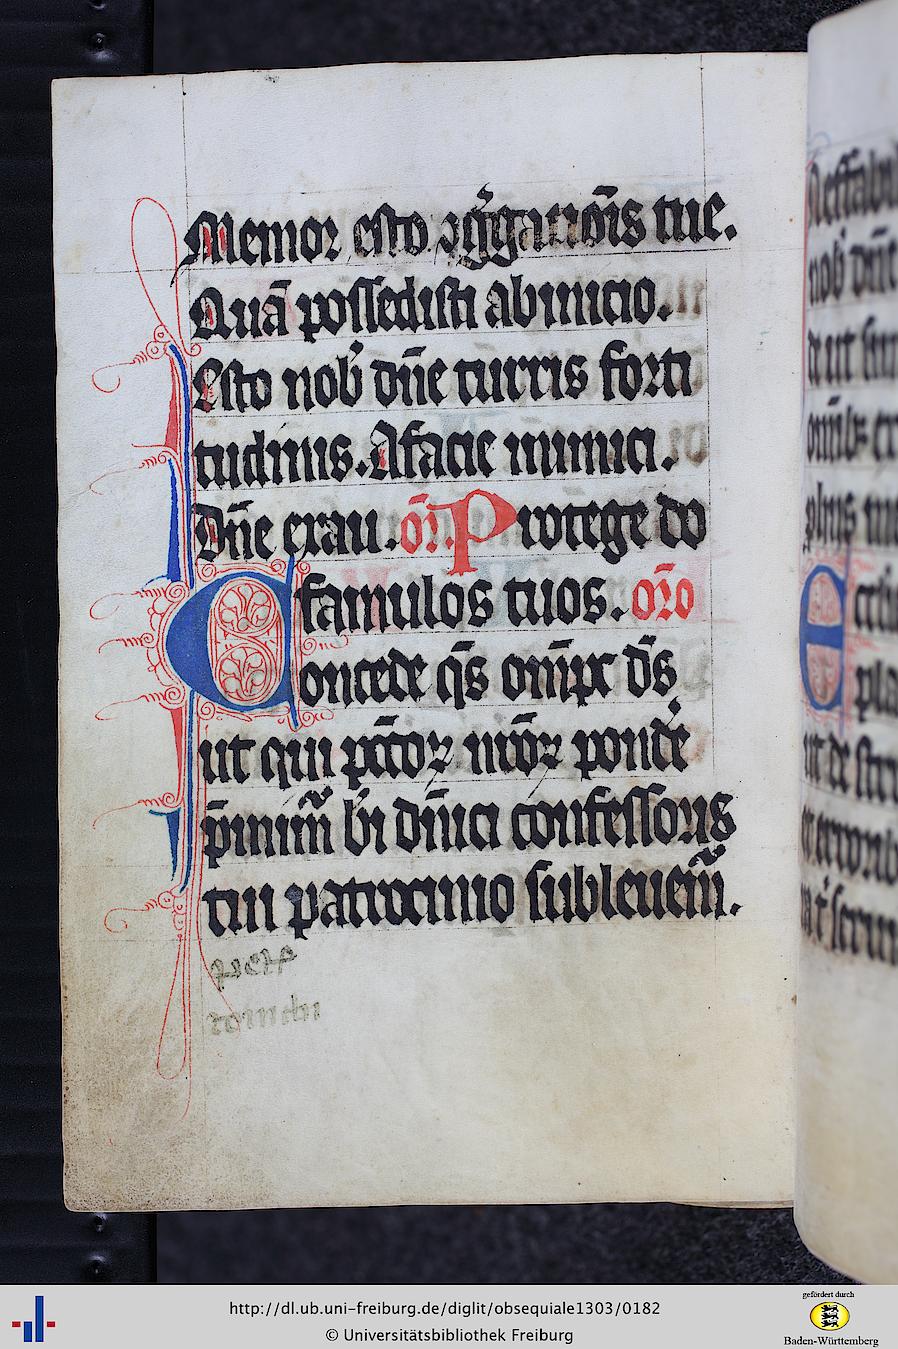 Memor esto ꝯg̃gatiōis tue.
Quā possedisti ab inicio.
Esto nob̾ dn̄e turris forti
tudinis. A facie inimici.
Dn̄e exau. or̄. Protege do
famulos tuos. or̄o
Concede q̄s om̄ipc̄ d̄s
ut qui pc̄toꝝ nr̄oꝝ pond̾e
p̄mim̾ b̄i dn̄ici confessoris
tui patrocinio subleuem̾.
nob̾ dn̄e
de ut
http://dl.ub.uni-freiburg.de/diglit/obsequiale1303/0182
© Universitätsbibliothek Freiburg
gefördert durch
Baden-Württemberg